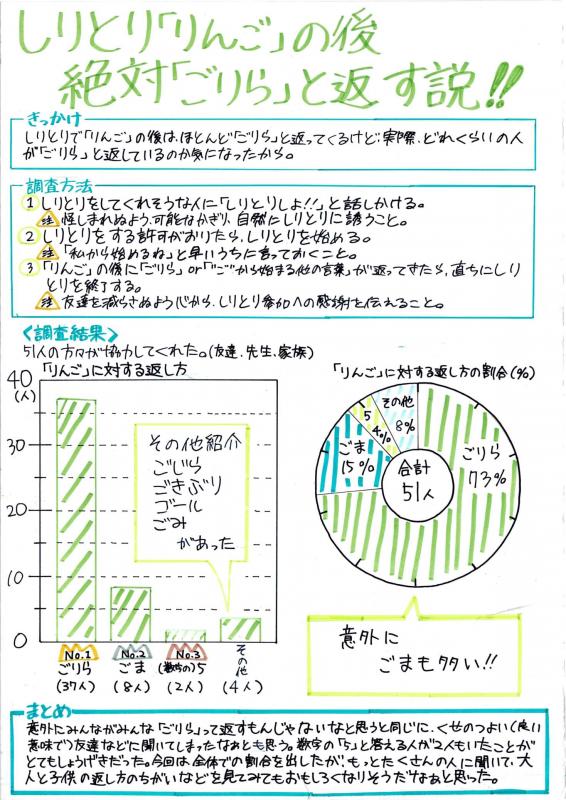 しりとり「りんご」の後
絶対「ごりら」と返す説!!
きっかけ
しりとりで「りんご」の後は、ほとんど「ごりら」と返ってくるけど、実際、どれくらいの人
が「ごりら」と返しているのか気になったから。
調査方法
① しりとりをしてくれそうな人に「しりとりしよ!!」と話しかける。
注 怪しまれぬよう、可能なかぎり、自然にしりとりに誘うこと。
② しりとりをする許可がおりたら、しりとりを始める。
注 「私から始めるね」と早いうちに言っておくこと。
③ 「りんご」の後に「ごりら」or「"ご"から始まる他の言葉」が返ってきたら、直ちにしり
とりを終了する。
注 友達を減らさぬよう心から、しりとり参加への感謝を伝えること。
<調査結果>
51人の方々が協力してくれた。(友達、先生、家族)
「りんご」に対する返し方
40
(人)
30
20
10
0
その他紹介
ごじら
ごきぶり
ゴール
ごみ
があった
No.1
No.2
No.3
ごりら
ごま
(数字の)5
その他
(37人)
(8人)
(2人)
(4人)
「りんご」に対する返し方の割合(%)
その他
8%
5
4%
ごま
15%
ごりら
73%
合計
51人
意外に
ごまも多い!!
まとめ
意外にみんながみんな「ごりら」って返すもんじゃないなと思うと同じに、くせのつよい(良い
意味で)友達などに聞いてしまったなぁとも思う。数字の「5」と答える人が2人もいたことが
とてもしょうげきだった。今回は全体での割合を出したが、もっとたくさんの人に聞いて、大
人と子供の返し方のちがいなどを見てみてもおもしろくなりそうだなぁと思った。